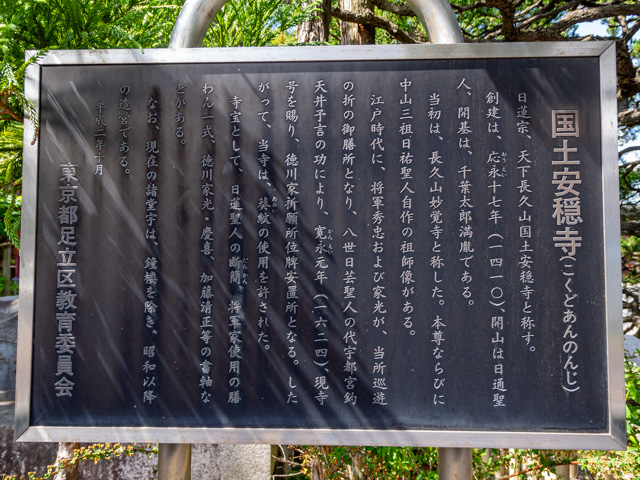 国土安穏寺(こくどあんのんじ)
日蓮宗、天下長久山国土安穏寺と称す。
創建は、応永十七年(一四一〇)、開山は日通聖
人、開基は、千葉太郎満胤である。
当初は、長久山妙覚寺と称した。本尊ならびに
中山三祖日祐聖人自作の祖師像がある。
江戸時代に、将軍秀忠および家光が、当所巡遊
の折の御膳所となり、八世日芸聖人の代宇都宮釣
天井予言の功により、寛永元年(一六二四)、現寺
号を賜り、徳川家祈願所位牌安置所となる。した
がって、当寺は、葵紋の使用を許された。
寺宝として、日蓮聖人の断簡、将軍家使用の膳
わん一式、徳川家光・慶喜、加藤清正等の書軸な
どがある。
なお、現在の諸堂宇は、鐘楼を除き、昭和以降
の造営である。
平成二年十月
東京都足立区教育委員会